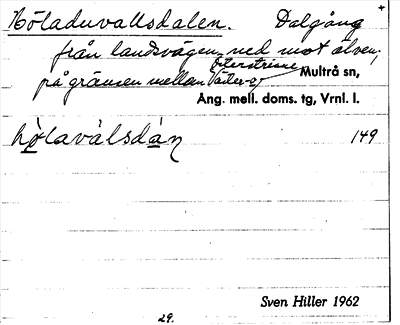 Höladuvallsdalen. Dalgång +
från landsvägen ned mot älven,
på gränsen mellan Väster- o/ Österstrinne Multrå sn,
Ång. mell. doms. tg, Vrnl. l.
149
Sven Hiller 1962
29.